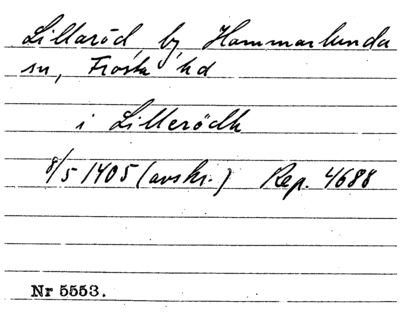 Lillaröd, by, Hammarlunda
sn, Frosta hd
i Lillerödh
8/5 1405 (avskr.) Rep. 4688
Nr 5553.